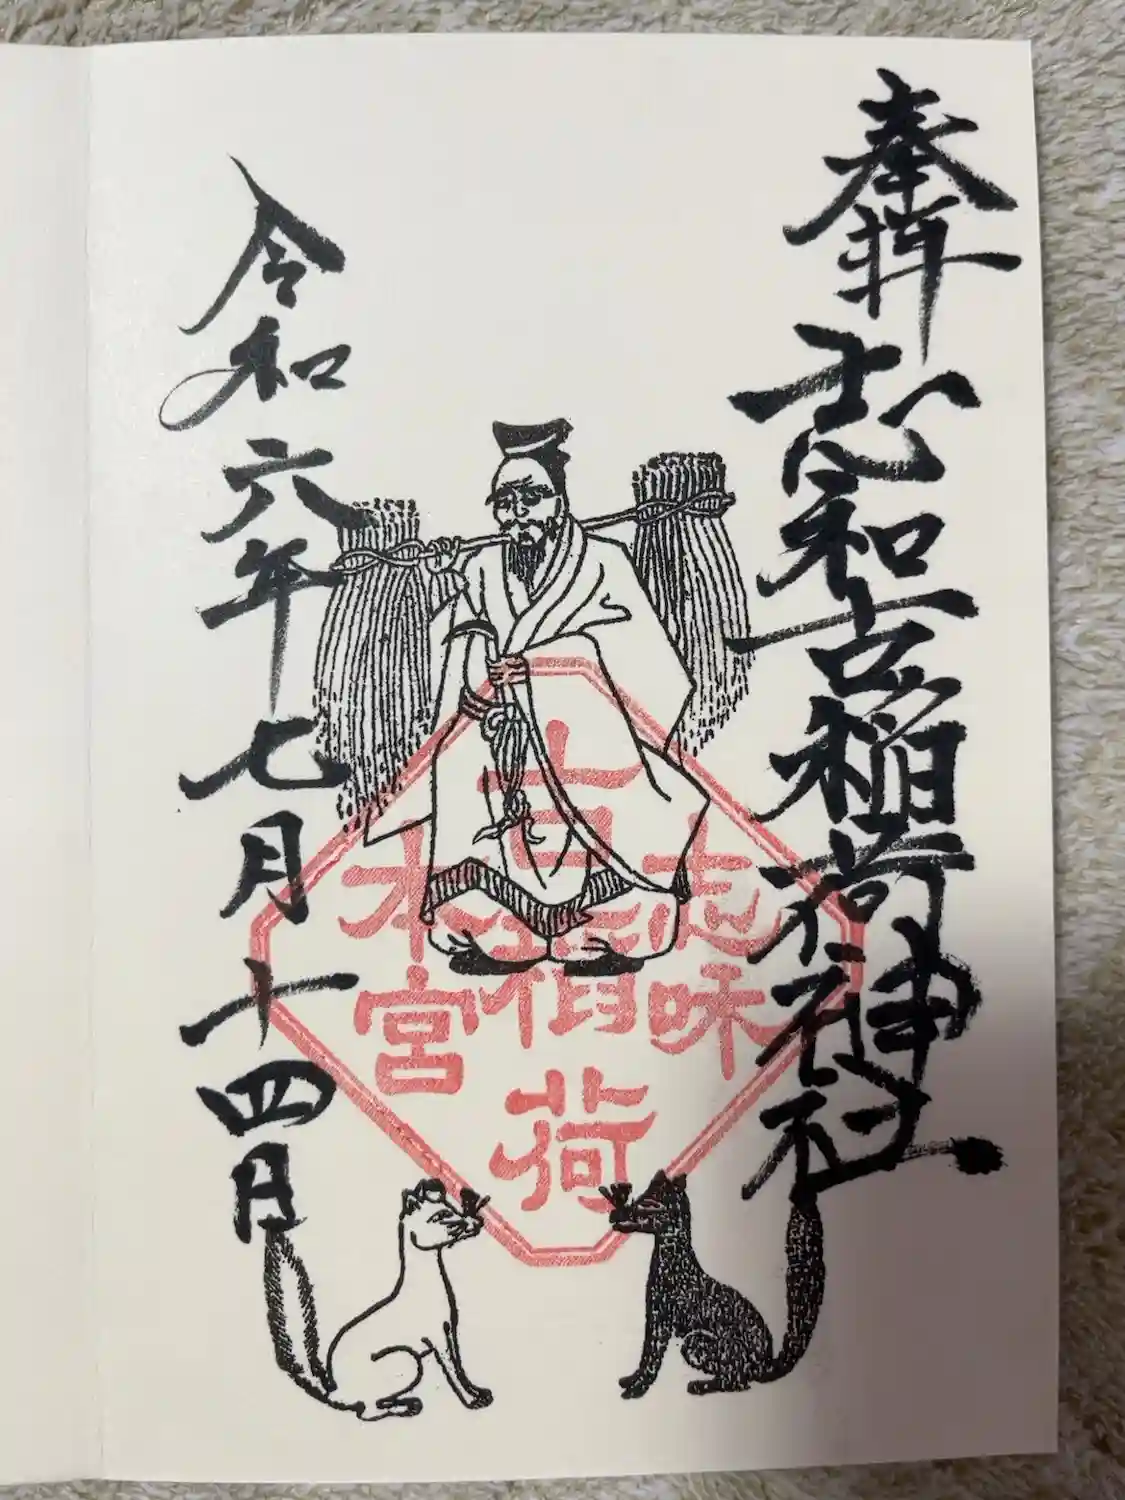 奉拝
志和古稲荷神社
志咊
古稲荷
本宮
令和六年七月十四日